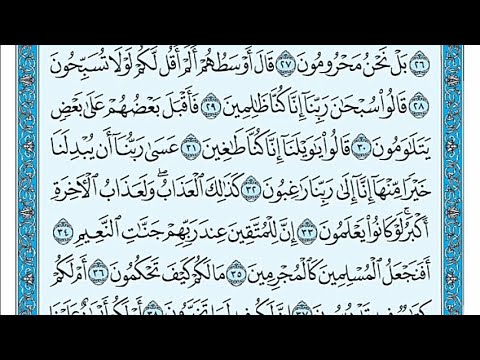 ٢٦ بَلْ نَحْنُ مَحْرُومُونَ ٢٧ قَالَ أَوْسَطُهُمْ أَلَمْ أَقُل لَّكُمْ لَوْلَا تُسَبِّحُونَ
٢٨ قَالُوا۟ سُبْحَٰنَ رَبِّنَآ إِنَّا كُنَّا ظَٰلِمِينَ ٢٩ فَأَقْبَلَ بَعْضُهُمْ عَلَىٰ بَعْضٍ
يَتَلَٰوَمُونَ ٣٠ قَالُوا۟ يَٰوَيْلَنَآ إِنَّا كُنَّا طَٰغِينَ ٣١ عَسَىٰ رَبُّنَآ أَن يُبْدِلَنَا
خَيْرًا مِّنْهَآ إِنَّآ إِلَىٰ رَبِّنَا رَٰغِبُونَ ٣٢ كَذَٰلِكَ ٱلْعَذَابُ ۖ وَلَعَذَابُ ٱلْءَاخِرَةِ
أَكْبَرُ ۚ لَوْ كَانُوا۟ يَعْلَمُونَ ٣٣ إِنَّ لِلْمُتَّقِينَ عِندَ رَبِّهِمْ جَنَّٰتِ ٱلنَّعِيمِ ٣٤
أَفَنَجْعَلُ ٱلْمُسْلِمِينَ كَٱلْمُجْرِمِينَ ٣٥ مَا لَكُمْ كَيْفَ تَحْكُمُونَ ٣٦ أَمْ لَكُمْ